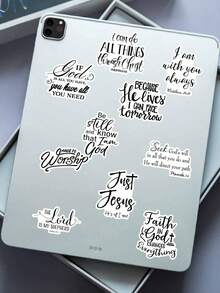 I can do
ALL THINGS
through Christ
I am
with you
always
Matthew 28:20
IF
God
IS ALL YOU HAVE
you have all
YOU NEED
BECAUSE
He lives
I CAN FACE
tomorrow
Be
Still
and know
that I am
God
Worship
Seek God's will
in all that you do and
He will direct your path
Just
Jesus
THE
Lord
IS MY SHEPHERD
Faith
IN
God
CHANGES
everything